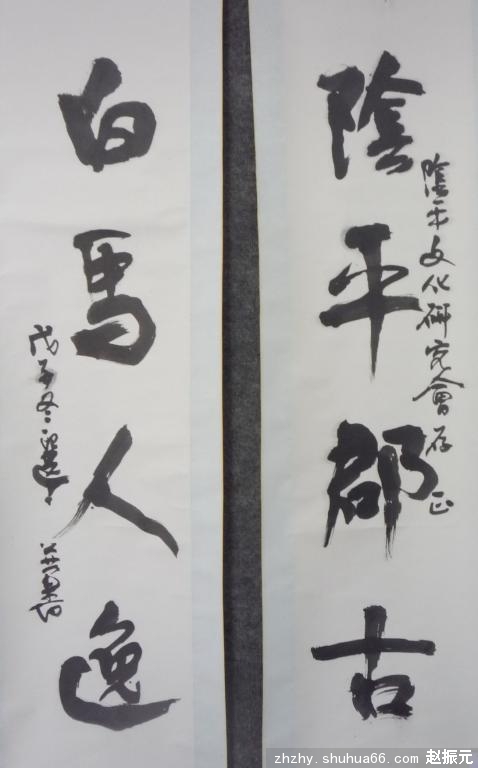 陰平郡古
陰平文化研究會存正
白馬人逸
戊子冬
書
zhzhy.shuhua66.com 赵振元